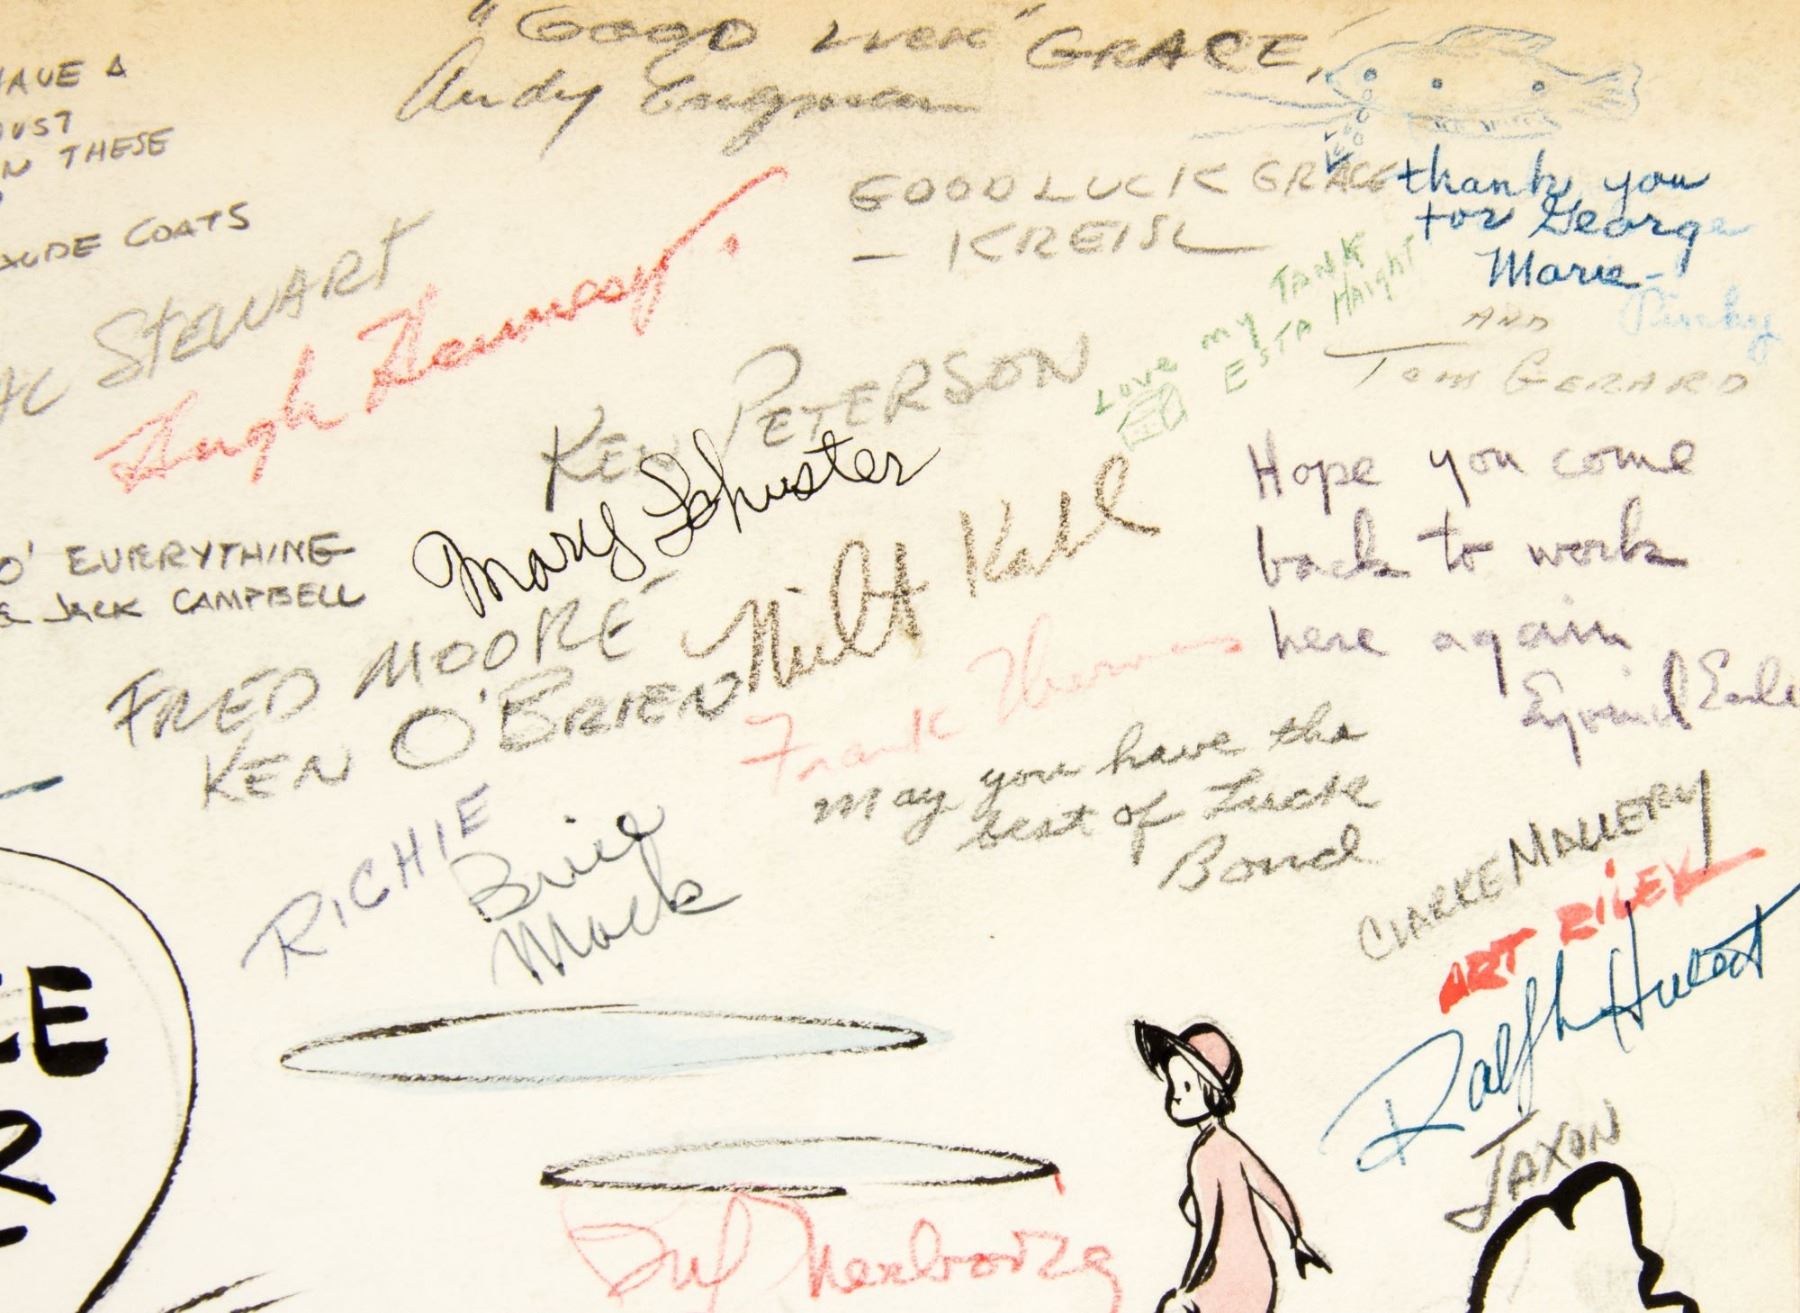 "GOOD LUCK" GRACE,
Andy Engman
HAVE A
JUST
THESE
COATS
STEWART
Hugh Hennesy.
GOOD LUCK GRACE
— KREISL
thank you
for George
Marie-
Pinky
AND
TOM GERARD
LOVE MY TANK
ESTA HAIGHT
KEN PETERSON
Mary Schuster
Milt Kahl
Hope you come
back to work
here again
Eyvind Earle
O' EVERYTHING
JACK CAMPBELL
FRED MOORE
KEN O'BRIEN
Frank Thomas
May you have the
best of Luck
Bond
RICHIE
Brice
Mack
CLARKE MALLERY
ART RILEY
Ralph Hulett
JAXON